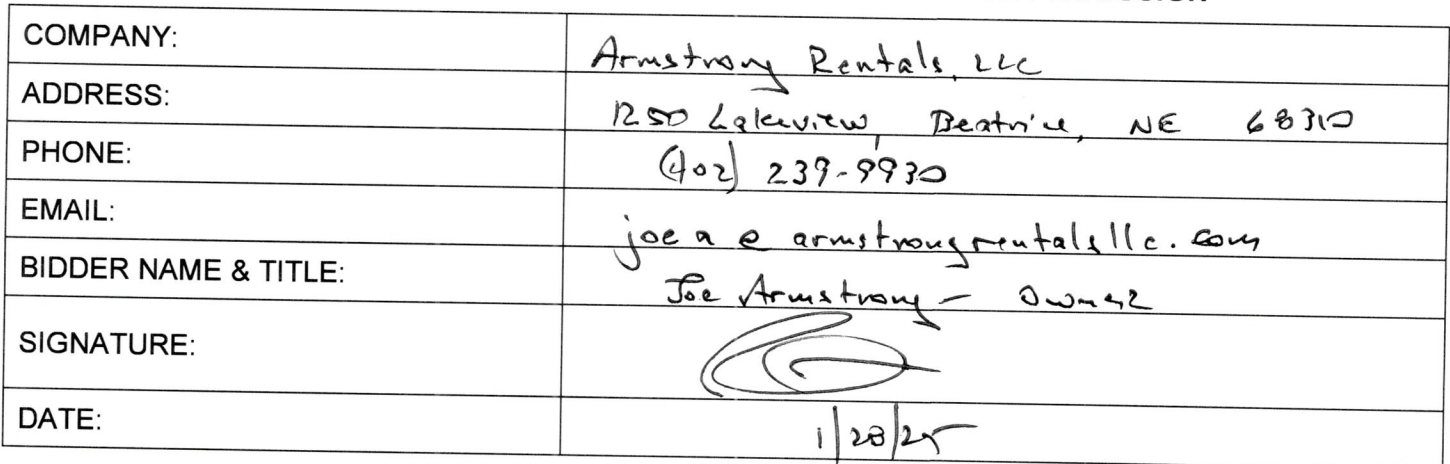 COMPANY: Armstrong Rentals, LLC
ADDRESS: 1250 Lakeview, Beatrice, NE 68310
PHONE: (402) 239-9930
EMAIL: joea@armstrongrentalsllc.com
BIDDER NAME & TITLE: Joe Armstrong - Owner
SIGNATURE:
DATE: 1/28/25